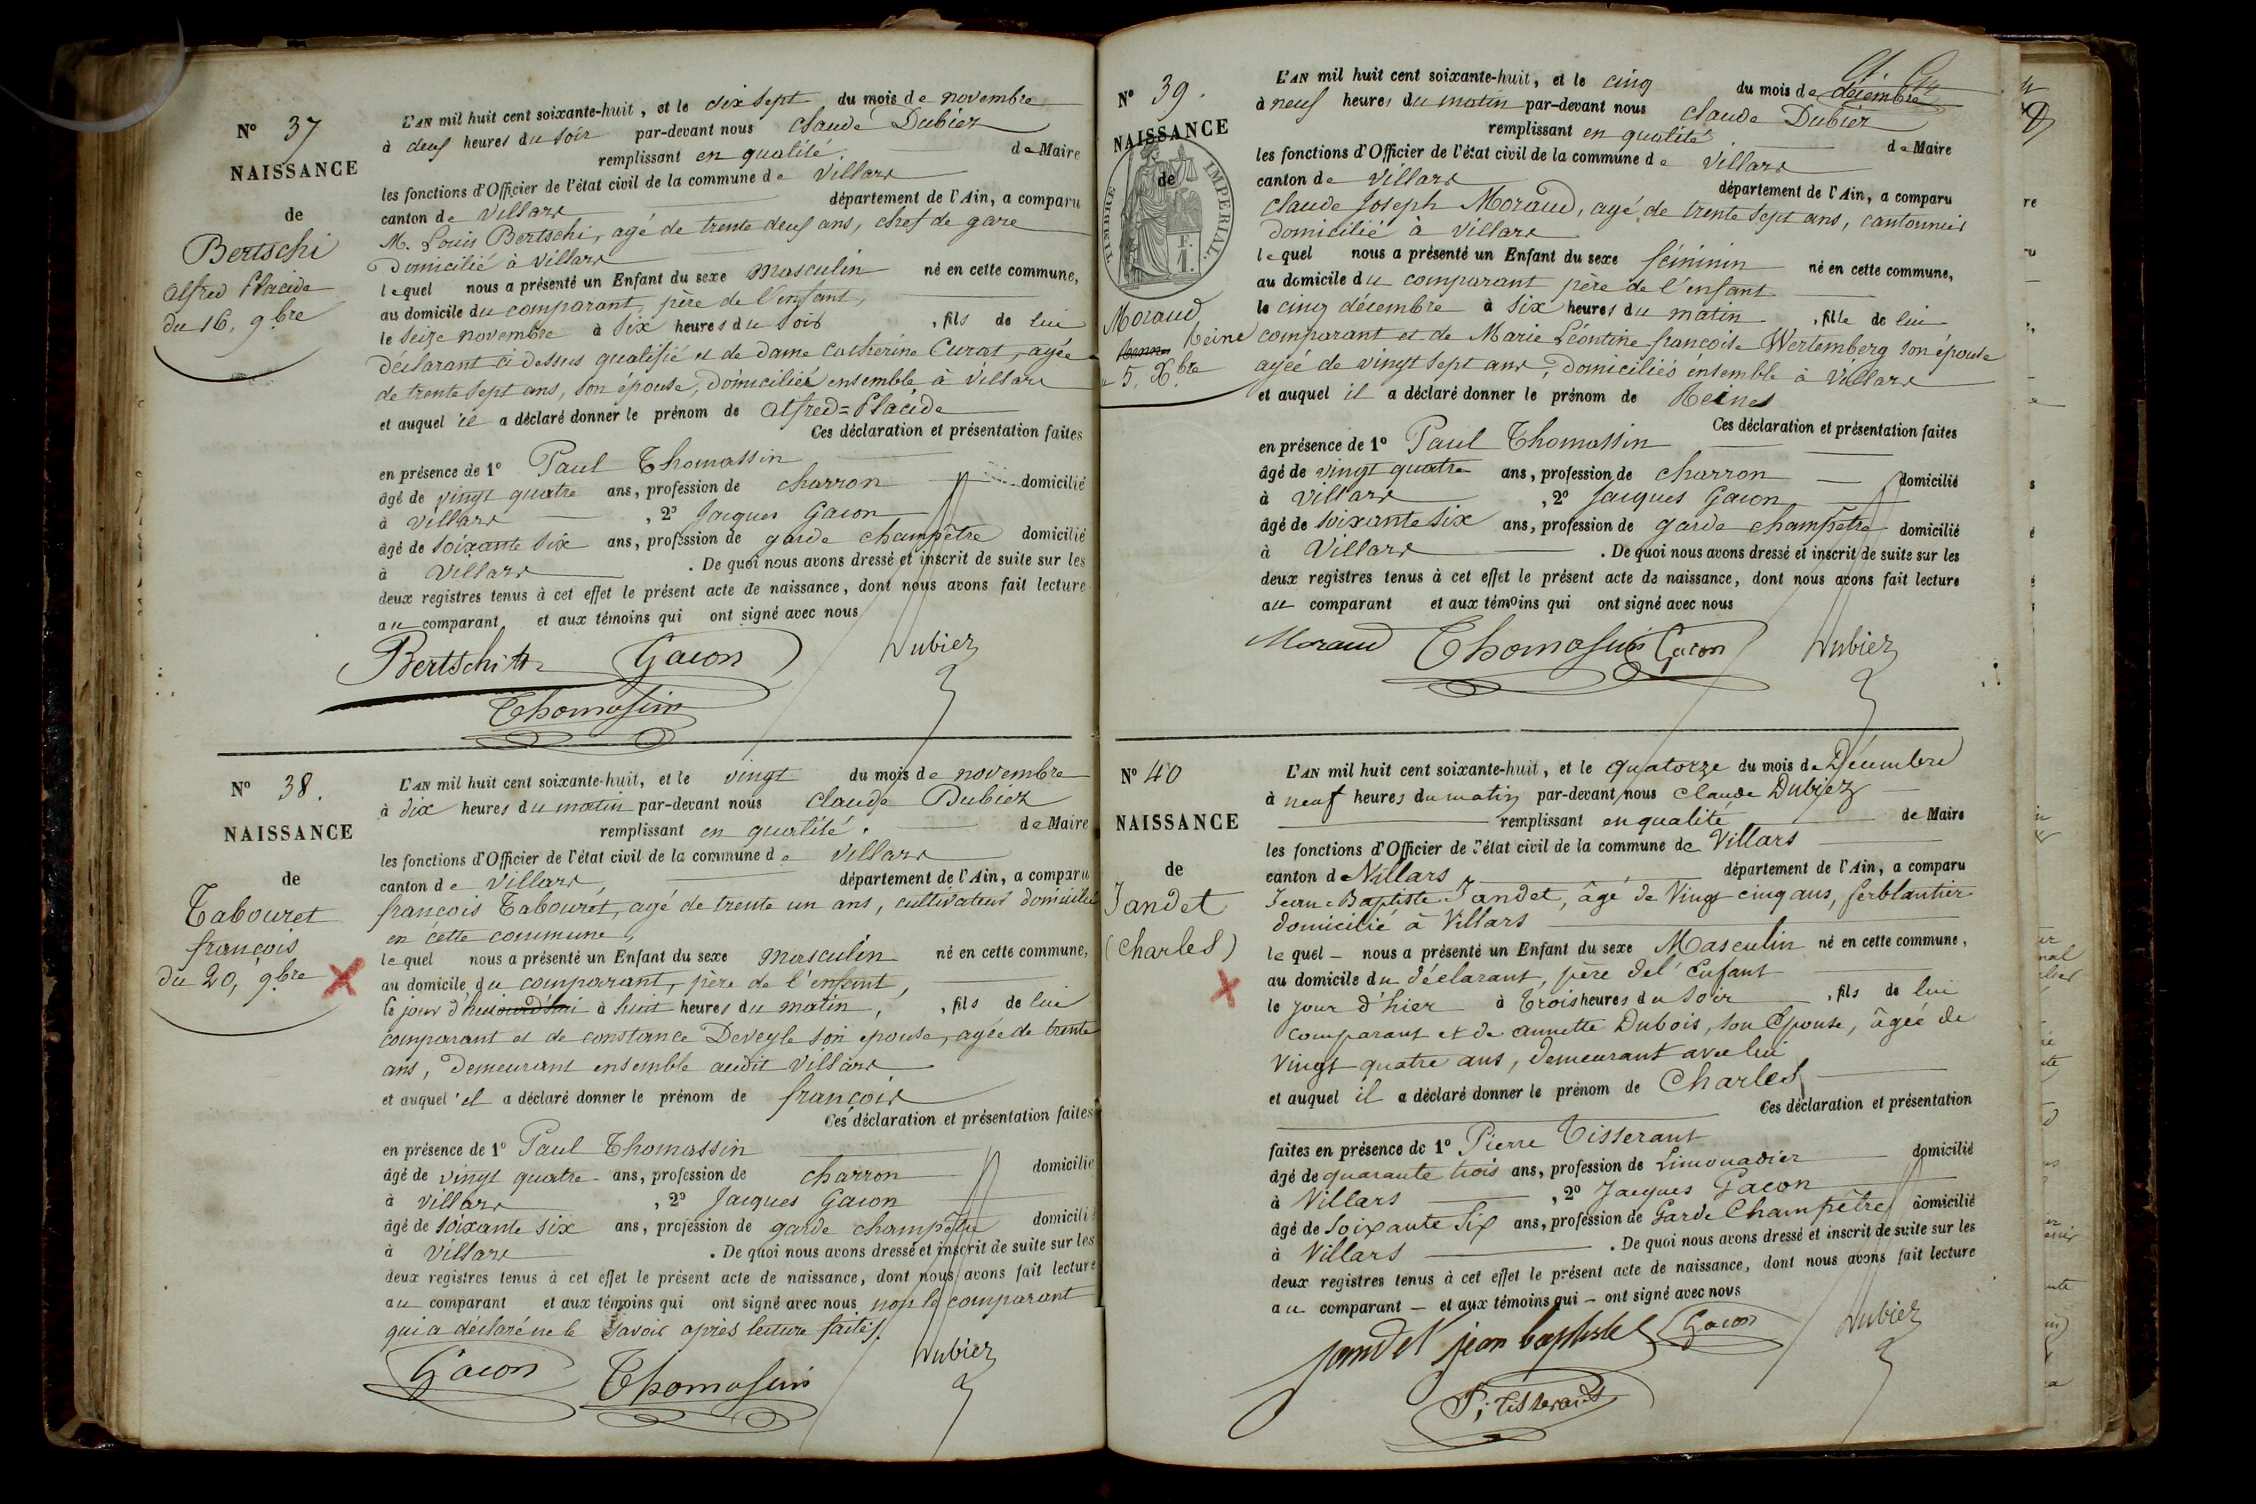 N° 37
NAISSANCE
de
Bertschi
alfred Placide
du 16, 9.bre
L'AN mil huit cent soixante-huit, et le dix sept du mois de novembre
à deuf heures du soir par-devant nous claude Dubiez
remplissant en qualité de Maire
les fonctions d'Officier de l'état civil de la commune de Villars
canton de Villars département de l'Ain, a comparu
M. Louis Bertschi, agé de trente deuf ans, chef de gare
Domicilié à Villars
lequel nous a présenté un Enfant du sexe masculin né en cette commune,
au domicile du comparant, père de l'enfant,
le seize novembre à six heures du soir , fils de lui
déclarant ci dessus qualifié et de dame catherine Curat, agée
de trente sept ans, son épouse, domiciliés ensemble à Villars
et auquel il a déclaré donner le prénom de alfred=Placide
Ces déclaration et présentation faites
en présence de 1° Paul Thomassin
âgé de vingt quatre ans, profession de charron domicilié
à Villars , 2° Jacques Gacon
âgé de soixante six ans, profession de garde champêtre domicilié
à Villars . De quoi nous avons dressé et inscrit de suite sur les
deux registres tenus à cet effet le présent acte de naissance, dont nous avons fait lecture
au comparant et aux témoins qui ont signé avec nous
Bertschi Gacon Dubiez
Thomassin
N° 38.
NAISSANCE
de
Tabouret
françois
du 20, 9.bre
L'AN mil huit cent soixante-huit, et le vingt du mois de novembre
à dix heures du matin par-devant nous claude Dubiez
remplissant en qualité. de Maire
les fonctions d'Officier de l'état civil de la commune de Villars
canton de Villars, département de l'Ain, a comparu
françois Tabouret, agé de trente un ans, cultivateur domicilié
en cette commune,
lequel nous a présenté un Enfant du sexe masculin né en cette commune,
au domicile du comparant, père de l'enfant,
le jour d'hui à huit heures du matin, , fils de lui
comparant et de constance Deveyle son epouse, agée de trente
ans, Demeurant ensemble audit Villars
et auquel il a déclaré donner le prénom de françois
Ces déclaration et présentation faites
en présence de 1° Paul Thomassin
âgé de vingt quatre ans, profession de charron domicilié
à Villars , 2° Jacques Gacon
âgé de soixante six ans, profession de garde champêtre domicilié
à Villars . De quoi nous avons dressé et inscrit de suite sur les
deux registres tenus à cet effet le présent acte de naissance, dont nous avons fait lecture
au comparant et aux témoins qui ont signé avec nous non le comparant
qui a déclaré ne le savoir après lecture faite.
Gacon Thomassin Dubiez
N° 39.
NAISSANCE
de
TIMBRE IMPERIAL
1 F.
Moraud
Reine
5. X.bre
L'AN mil huit cent soixante-huit, et le cinq du mois de décembre
à neuf heures du matin par-devant nous claude Dubiez
remplissant en qualité de Maire
les fonctions d'Officier de l'état civil de la commune de Villars
canton de Villars département de l'Ain, a comparu
claude Joseph Moraud, agé de trente sept ans, cantonnier
domicilié à Villars
lequel nous a présenté un Enfant du sexe féminin né en cette commune,
au domicile du comparant père de l'enfant
le cinq décembre à six heures du matin , fille de lui
comparant et de Marie Léontine françoise Wertemberg son épouse
agée de vingt sept ans, domiciliés ensemble à Villars
et auquel il a déclaré donner le prénom de Reine
Ces déclaration et présentation faites
en présence de 1° Paul Thomassin
âgé de vingt quatre ans, profession de charron domicilié
à Villars , 2° Jacques Gacon
âgé de soixante six ans, profession de garde champêtre domicilié
à Villars . De quoi nous avons dressé et inscrit de suite sur les
deux registres tenus à cet effet le présent acte de naissance, dont nous avons fait lecture
au comparant et aux témoins qui ont signé avec nous
Moraud Thomassin Gacon Dubiez
N° 40
NAISSANCE
de
Jandet
(Charles)
L'AN mil huit cent soixante-huit, et le quatorze du mois de Décembre
à neuf heures du matin par-devant nous claude Dubiez
remplissant en qualité de Maire
les fonctions d'Officier de l'état civil de la commune de Villars
canton de Villars département de l'Ain, a comparu
Jean-Baptiste Jandet, âgé de Vingt cinq ans, ferblantier
domicilié à Villars
lequel nous a présenté un Enfant du sexe Masculin né en cette commune,
au domicile du déclarant, père de l'Enfant
le jour d'hier à Trois heures du Soir , fils de lui
comparant et de annette Dubois, son Epouse, âgée de
Vingt quatre ans, demeurant avec lui
et auquel il a déclaré donner le prénom de Charles
Ces déclaration et présentation
faites en présence de 1° Pierre Tisserant
âgé de quarante trois ans, profession de Limonadier domicilié
à Villars , 2° Jacques Gacon
âgé de Soixante Six ans, profession de Garde Champêtre domicilié
à Villars . De quoi nous avons dressé et inscrit de suite sur les
deux registres tenus à cet effet le présent acte de naissance, dont nous avons fait lecture
au comparant — et aux témoins qui — ont signé avec nous
jandet jean baptiste Gacon Dubiez
P. Tisserant